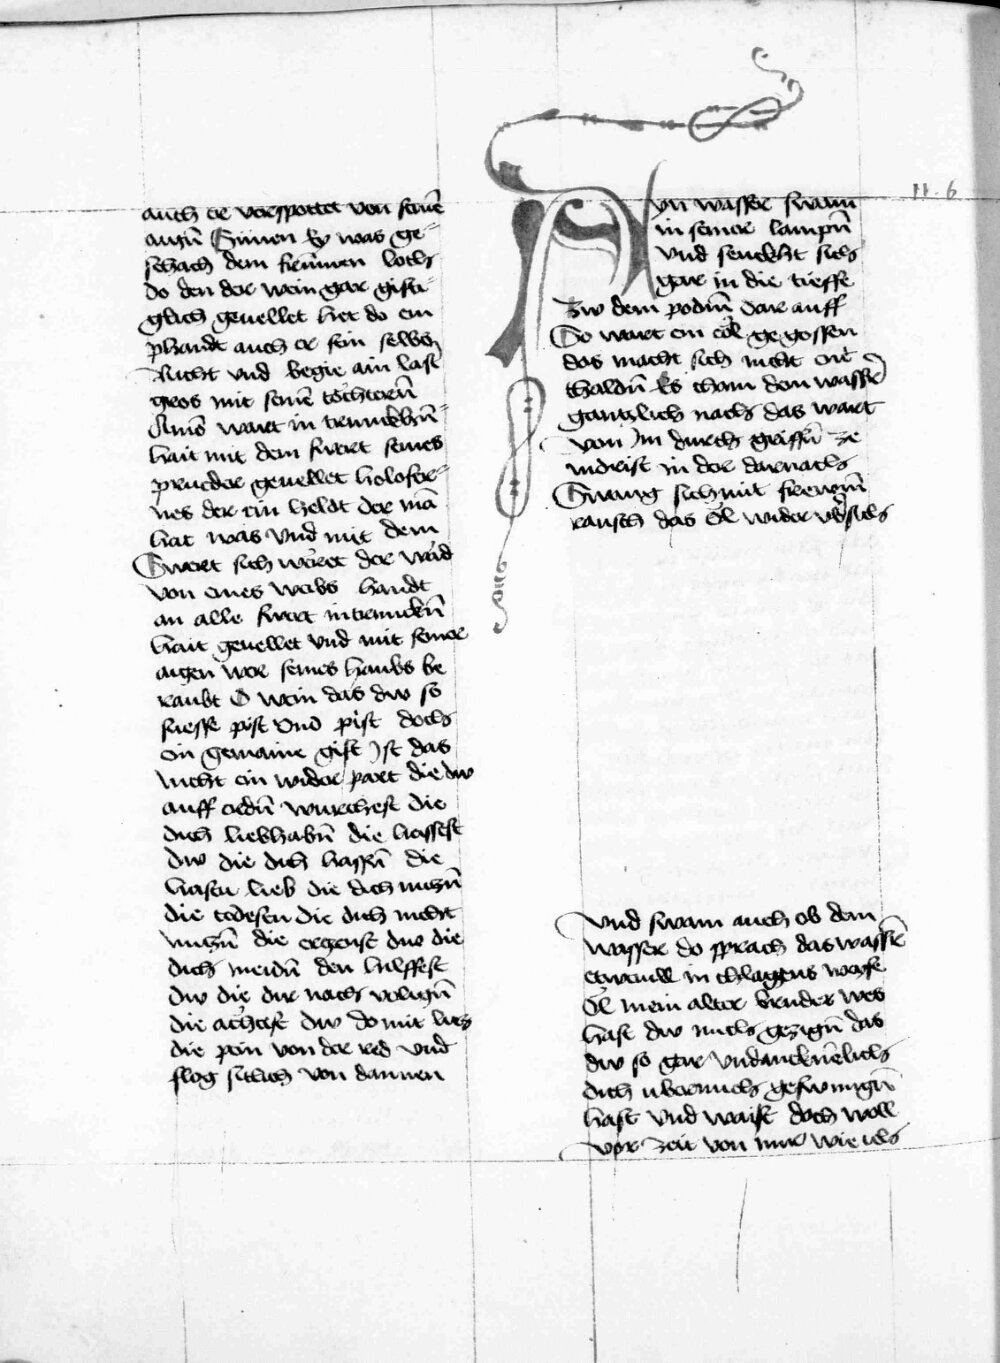 auch er verspottet von seinē
augn̄ Sinnen Ey was ge-
schach dem frumen loth
do den der wein gar gifti-
glich geuellet het do ein
phandt auch er sein selbs
Nicht vnd begie ain last
gros mit seinē tochterñ
Amō wart in trunckhn̄-
hait mit dem swert seines
prueder geuellet holofer-
nes der ein heldt der mā-
hat was Vnd mit dem
Swert sich weret der wād
von eines weibs handt
an alle swert intrunckn̄
hait geuellet vnd mit seiner
aigen wer seines haubs be
raubt O wein das dw so
suesse pist Vnd pist doch
ein gemaine gift Ist das
nicht ein wider part die dw
auff erdn̄ wurchest die
dich liebhabn̄ die hassest
dw die dich hassn̄ die
hastu lieb die dich nutzn̄
die todesen die dich nicht
nutzn̄ die ergenst dw die
dich meidn̄ den hilffest
dw die dir nach volign̄
die achtest dw do mit lies
die pein von der red vnd
flog sitlich von dannen
11.6
Ayn wasser swam
in seiner lampn̄
Vnd senckht sich
gar in die tieffe
Zw dem podm̄ Dar auff
So wart ein ol gegossen
das macht sich nicht
thaldn̄ Es cham dem wasser
gantzlich nach das wart
von Im durch griffn̄ ze
nidrist in der darnach
Swang sich mit frewm̄
rausch das Ol wider vbersich
Vnd swam auch ob dem
wasser do sprach das wasser
etweuil in chlagens weyse
Ol mein alter bruder wes
hast dw mich gezign̄ das
dw so gar vndancknēlich
dich vbermich geswungn̄
hast vnd waist doch woll
vor zeit von mir wie ich